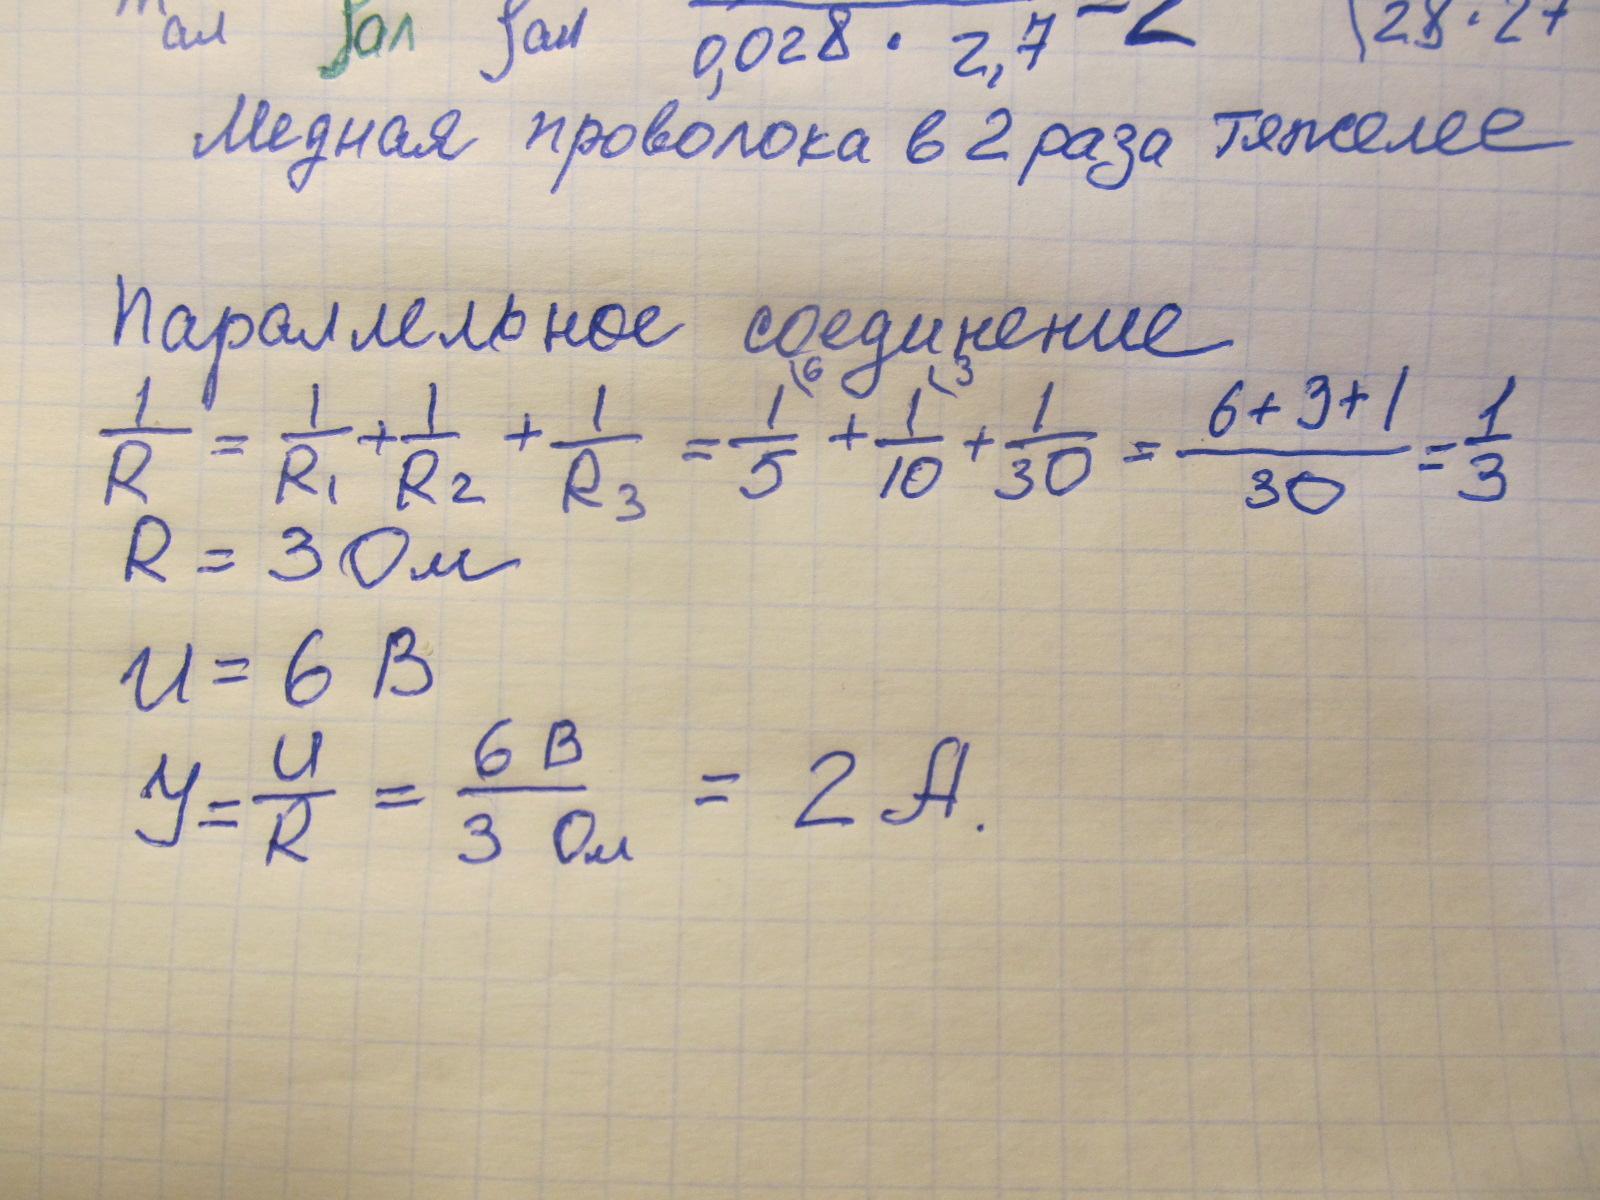 ал ρал ρал 0,028 · 2,7 = 2 28 · 27
Медная проволока в 2 раза тяжелее
Параллельное соединение
1/R = 1/R1 + 1/R2 + 1/R3 = 1\6/5 + 1\3/10 + 1/30 = 6+3+1/30 = 1/3
R = 3 Ом
U = 6 В
У = U/R = 6 В/3 Ом = 2 А.